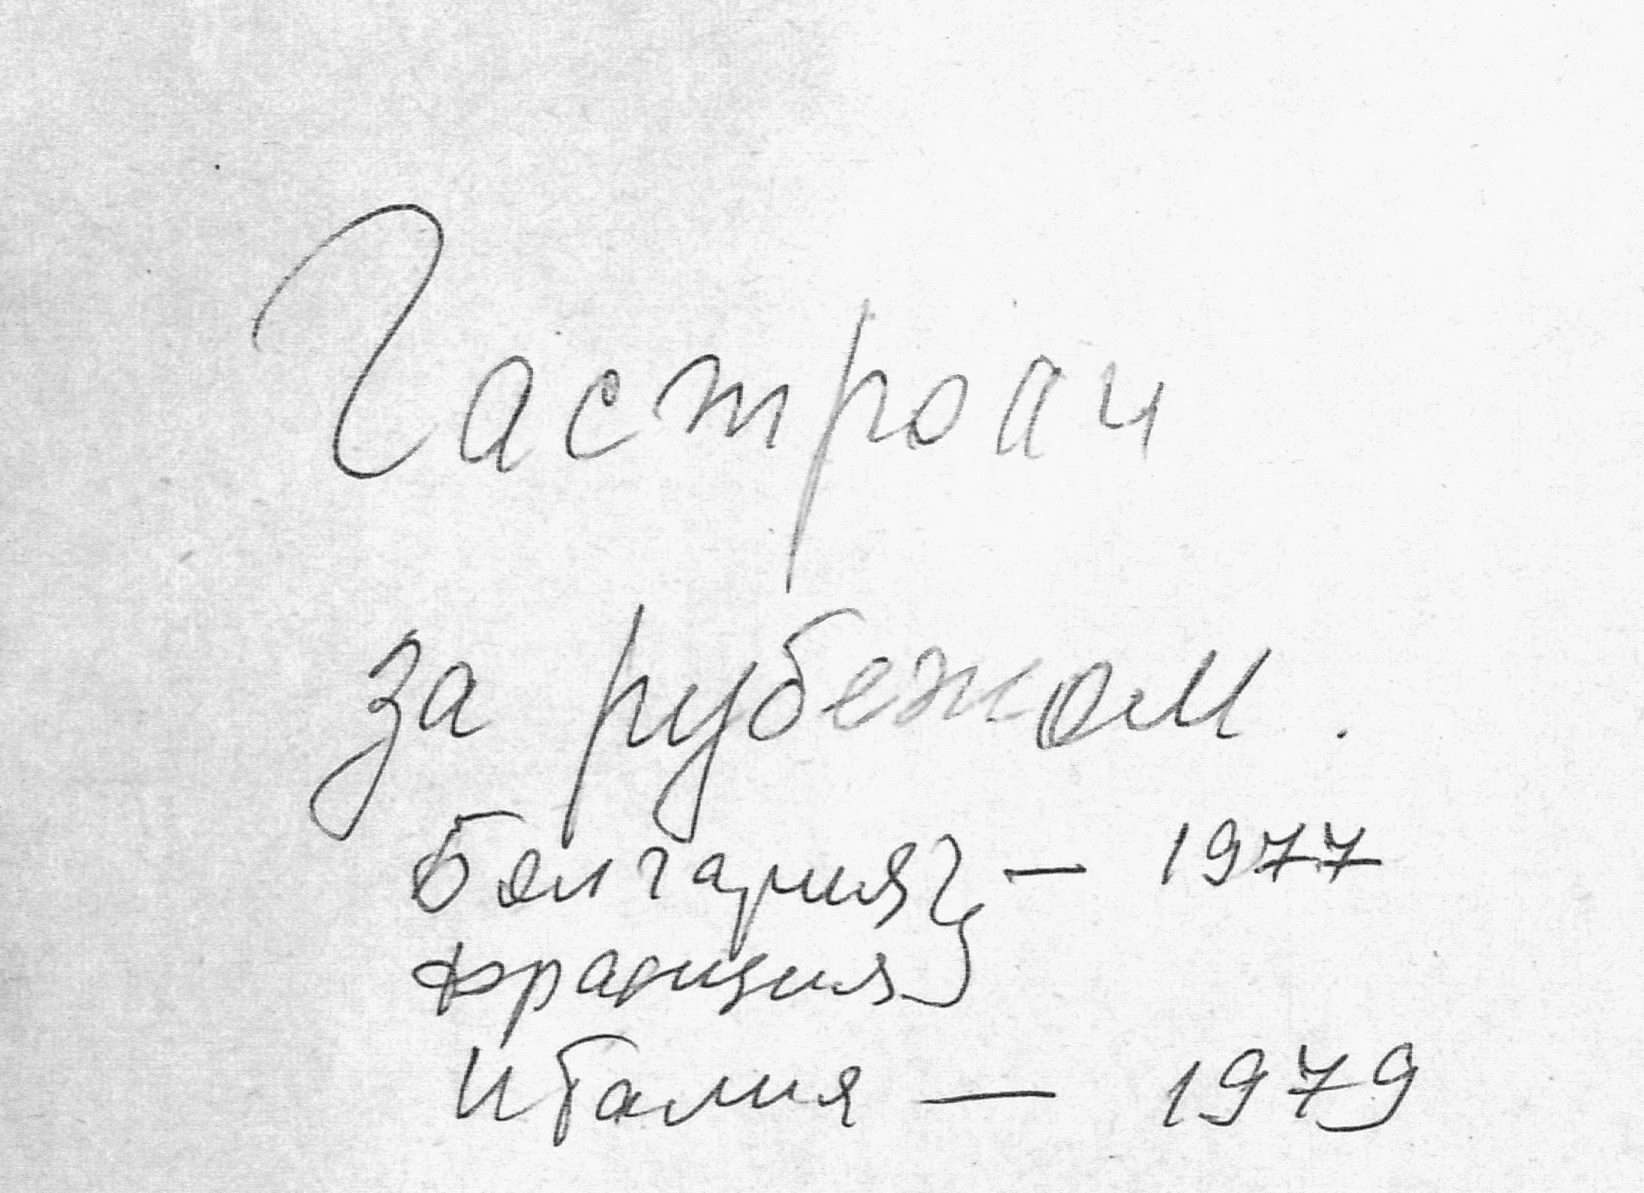 Гастроли
за рубежом.
Болгария } — 1977
Франция }
Италия — 1979